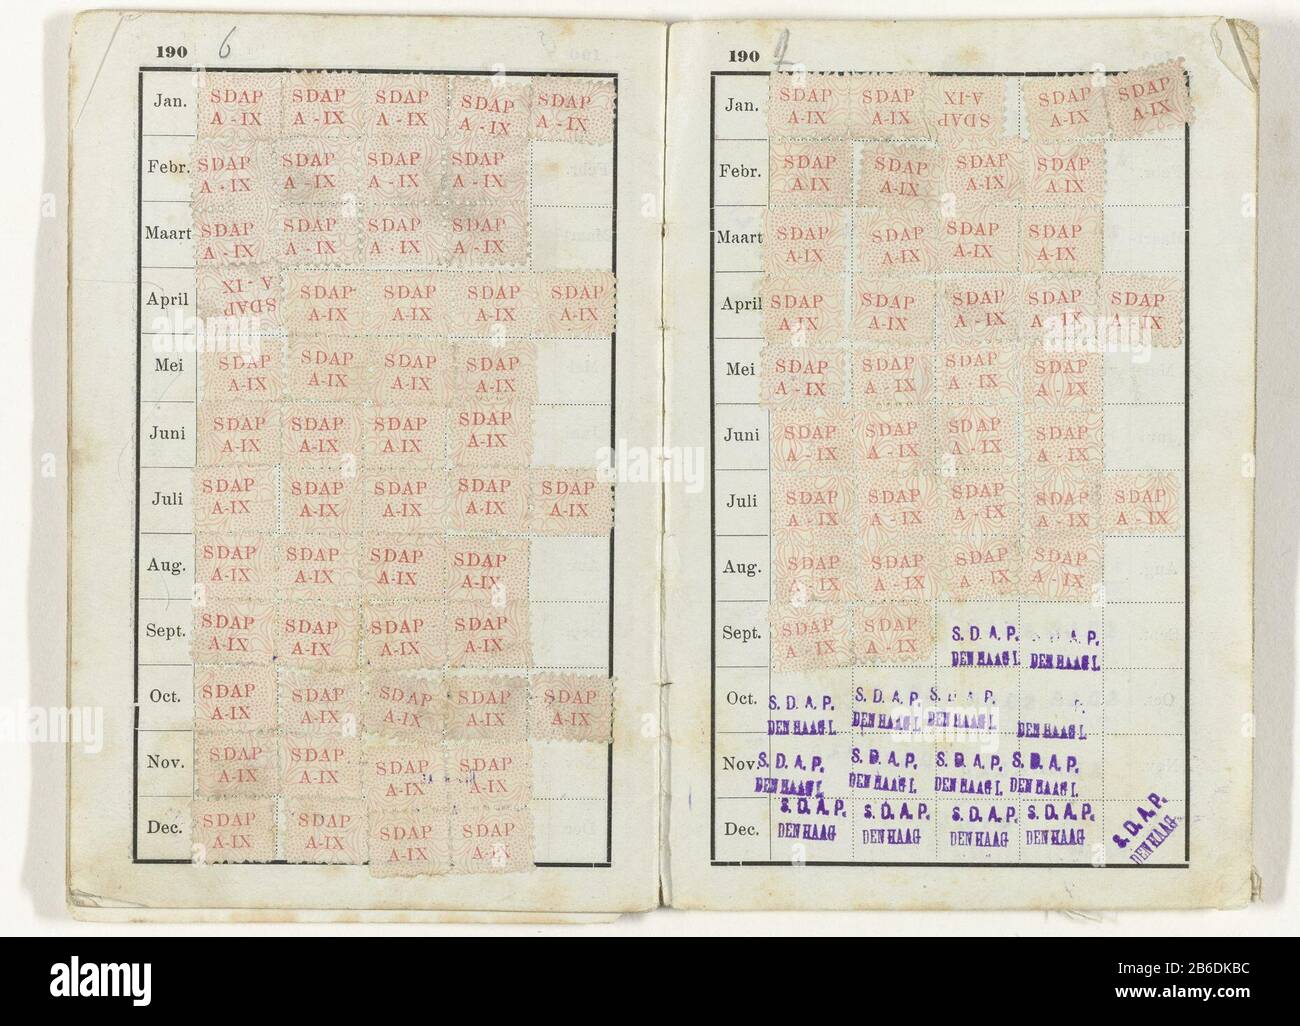 190 6
Jan. SDAP SDAP SDAP SDAP SDAP
A-IX A-IX A-IX A-IX A-IX
Febr. SDAP SDAP SDAP SDAP
A-IX A-IX A-IX A-IX
Maart SDAP SDAP SDAP SDAP
A-IX A-IX A-IX A-IX
April SDAP SDAP SDAP SDAP SDAP
A-IX A-IX A-IX A-IX A-IX
Mei SDAP SDAP SDAP SDAP
A-IX A-IX A-IX A-IX
Juni SDAP SDAP SDAP SDAP
A-IX A-IX A-IX A-IX
Juli SDAP SDAP SDAP SDAP SDAP
A-IX A-IX A-IX A-IX A-IX
Aug. SDAP SDAP SDAP SDAP
A-IX A-IX A-IX A-IX
Sept. SDAP SDAP SDAP SDAP
A-IX A-IX A-IX A-IX
Oct. SDAP SDAP SDAP SDAP SDAP
A-IX A-IX A-IX A-IX A-IX
Nov. SDAP SDAP SDAP SDAP
A-IX A-IX A-IX A-IX
Dec. SDAP SDAP SDAP SDAP
A-IX A-IX A-IX A-IX
190
Jan. SDAP SDAP SDAP SDAP SDAP
A-IX A-IX A-IX A-IX A-IX
Febr. SDAP SDAP SDAP SDAP
A-IX A-IX A-IX A-IX
Maart SDAP SDAP SDAP SDAP
A-IX A-IX A-IX A-IX
April SDAP SDAP SDAP SDAP SDAP
A-IX A-IX A-IX A-IX A-IX
Mei SDAP SDAP SDAP SDAP
A-IX A-IX A-IX A-IX
Juni SDAP SDAP SDAP SDAP
A-IX A-IX A-IX A-IX
Juli SDAP SDAP SDAP SDAP SDAP
A-IX A-IX A-IX A-IX A-IX
Aug. SDAP SDAP SDAP SDAP
A-IX A-IX A-IX A-IX
Sept. SDAP SDAP S. D. A. P. S. D. A. P.
A-IX A-IX DEN HAAG I. DEN HAAG I.
Oct. S. D. A. P. S. D. A. P. S. D. A. P.
DEN HAAG I. DEN HAAG I. DEN HAAG I. DEN HAAG I.
Nov. S. D. A. P. S. D. A. P. S. D. A. P. S. D. A. P.
DEN HAAG I. DEN HAAG I. DEN HAAG I. DEN HAAG I.
Dec. S. D. A. P. S. D. A. P. S. D. A. P. S. D. A. P. S. D. A. P.
DEN HAAG DEN HAAG DEN HAAG DEN HAAG DEN HAAG
alamy
Image ID: 2B6DKBC
www.alamy.com